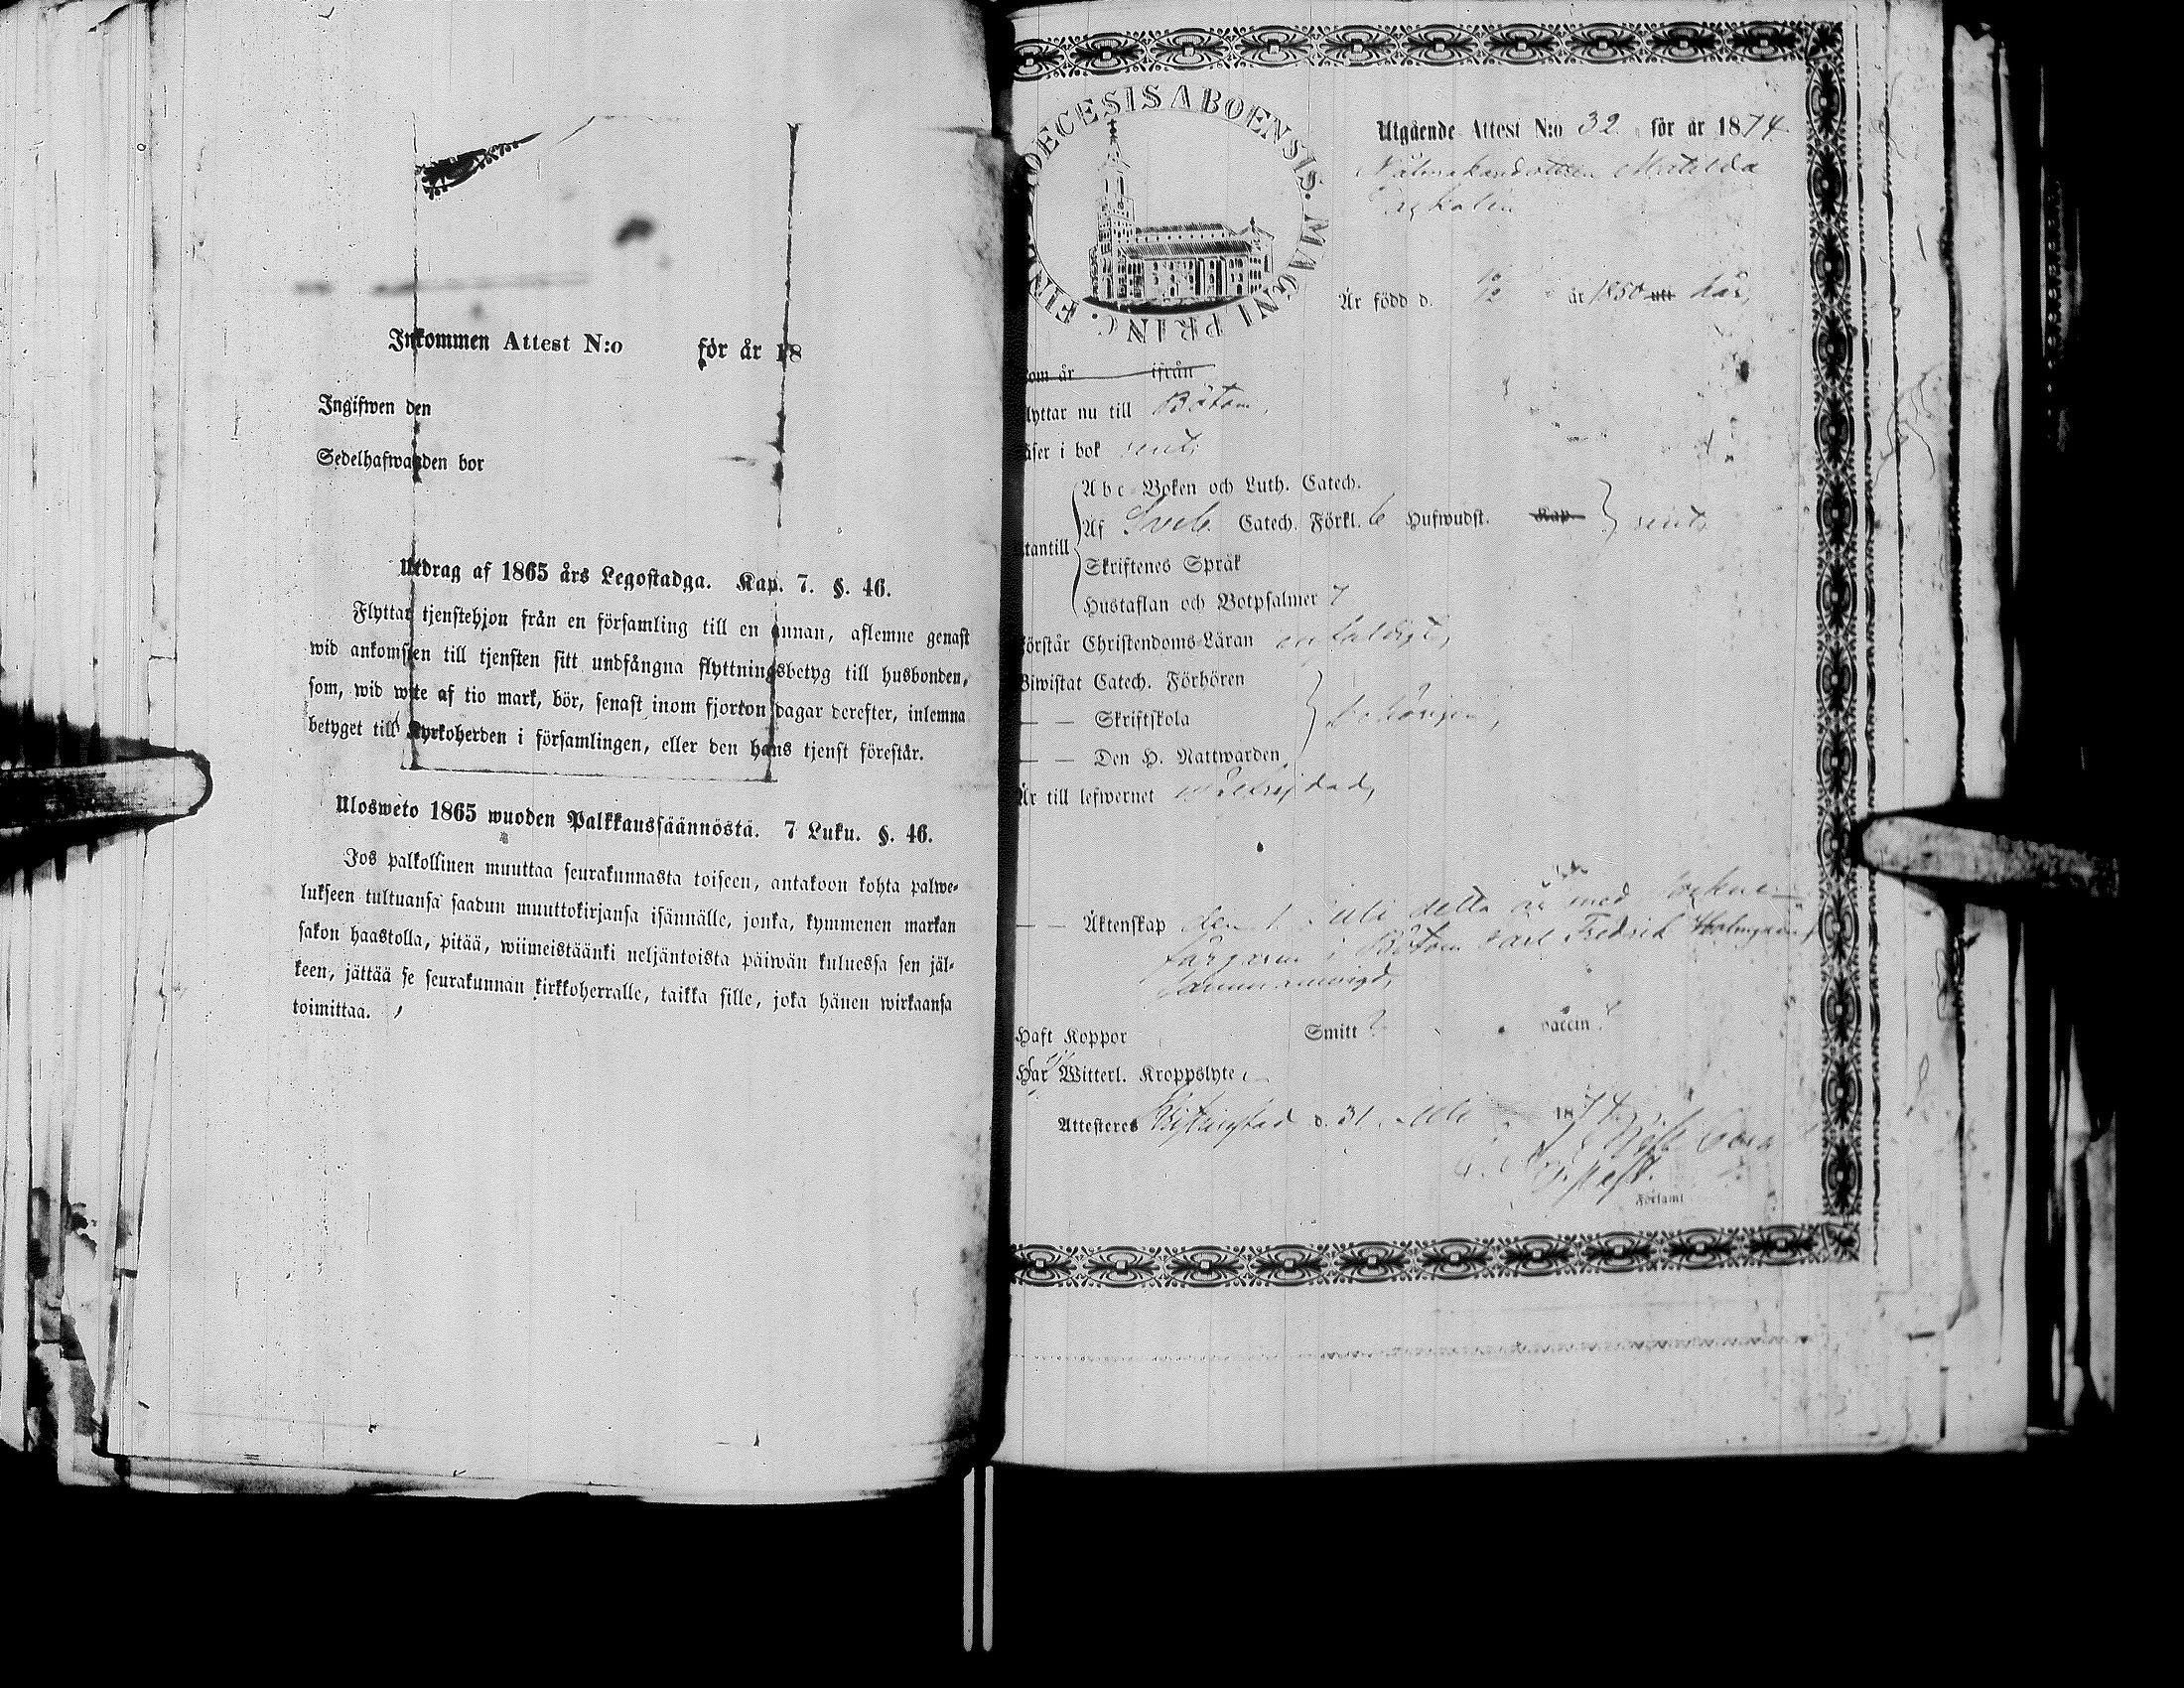 Inkommen Attest N:o för år 18
Ingifwen den
Sedelhafwanden bor
Utdrag af 1865 års Legostadga. Kap. 7. §. 46.
Flyttar tjenstehjon från en församling till en annan, aflemne genast
wid ankomsten till tjensten sitt undfångna flyttningsbetyg till husbonden,
som, wid wite af tio mark, bör, senast inom fjorton dagar derefter, inlemna
betyget till Kyrkoherden i församlingen, eller den hans tjenst förestår.
Ulosweto 1865 wuoden Palkkaussäännöstä. 7 Luku. §. 46.
Jos palkollinen muuttaa seurakunnasta toiseen, antakoon kohta palwe-
lukseen tultuansa saadun muuttokirjansa isännälle, jonka, kymmenen markan
sakon haastolla, pitää, wiimeistäänki neljäntoista päiwän kuluessa sen jäl-
keen, jättää se seurakunnan kirkkoherralle, taikka sille, joka hänen wirkaansa
toimittaa.
DIOECESIS ABOENSIS. MAGNI PRINC. FINL.
Utgående Attest N:o 32 för år 1874.
Matilda
Är född d. år 1850 utt här,
kom år ifrån
lyttar nu till Bötom,
äser i bok rent,
Abc-Boken och Luth. Catech.
Af Sveb. Catech. Förkl. 6 Hufwudst. Kap. rent,
tantill
Skriftenes Språk
Hustaflan och Botpsalmer 7
örstår Christendoms-Läran enfaldigt,
Biwistat Catech. Förhören
— — Skriftskola behörigen,
— — Den H. Nattwarden
Är till lefwernet oförvitlig
— — Äktenskap den 1 Juli detta år med Sockne-
färgaren i Bötom Carl Fredrik Holmqvist
sammanvigd,
Haft Koppor Smitt? vaccin?
Har ej Witterl. Kroppslyte
Attesteres Kristinestad d. 31 Juli 1874.
Förlamt